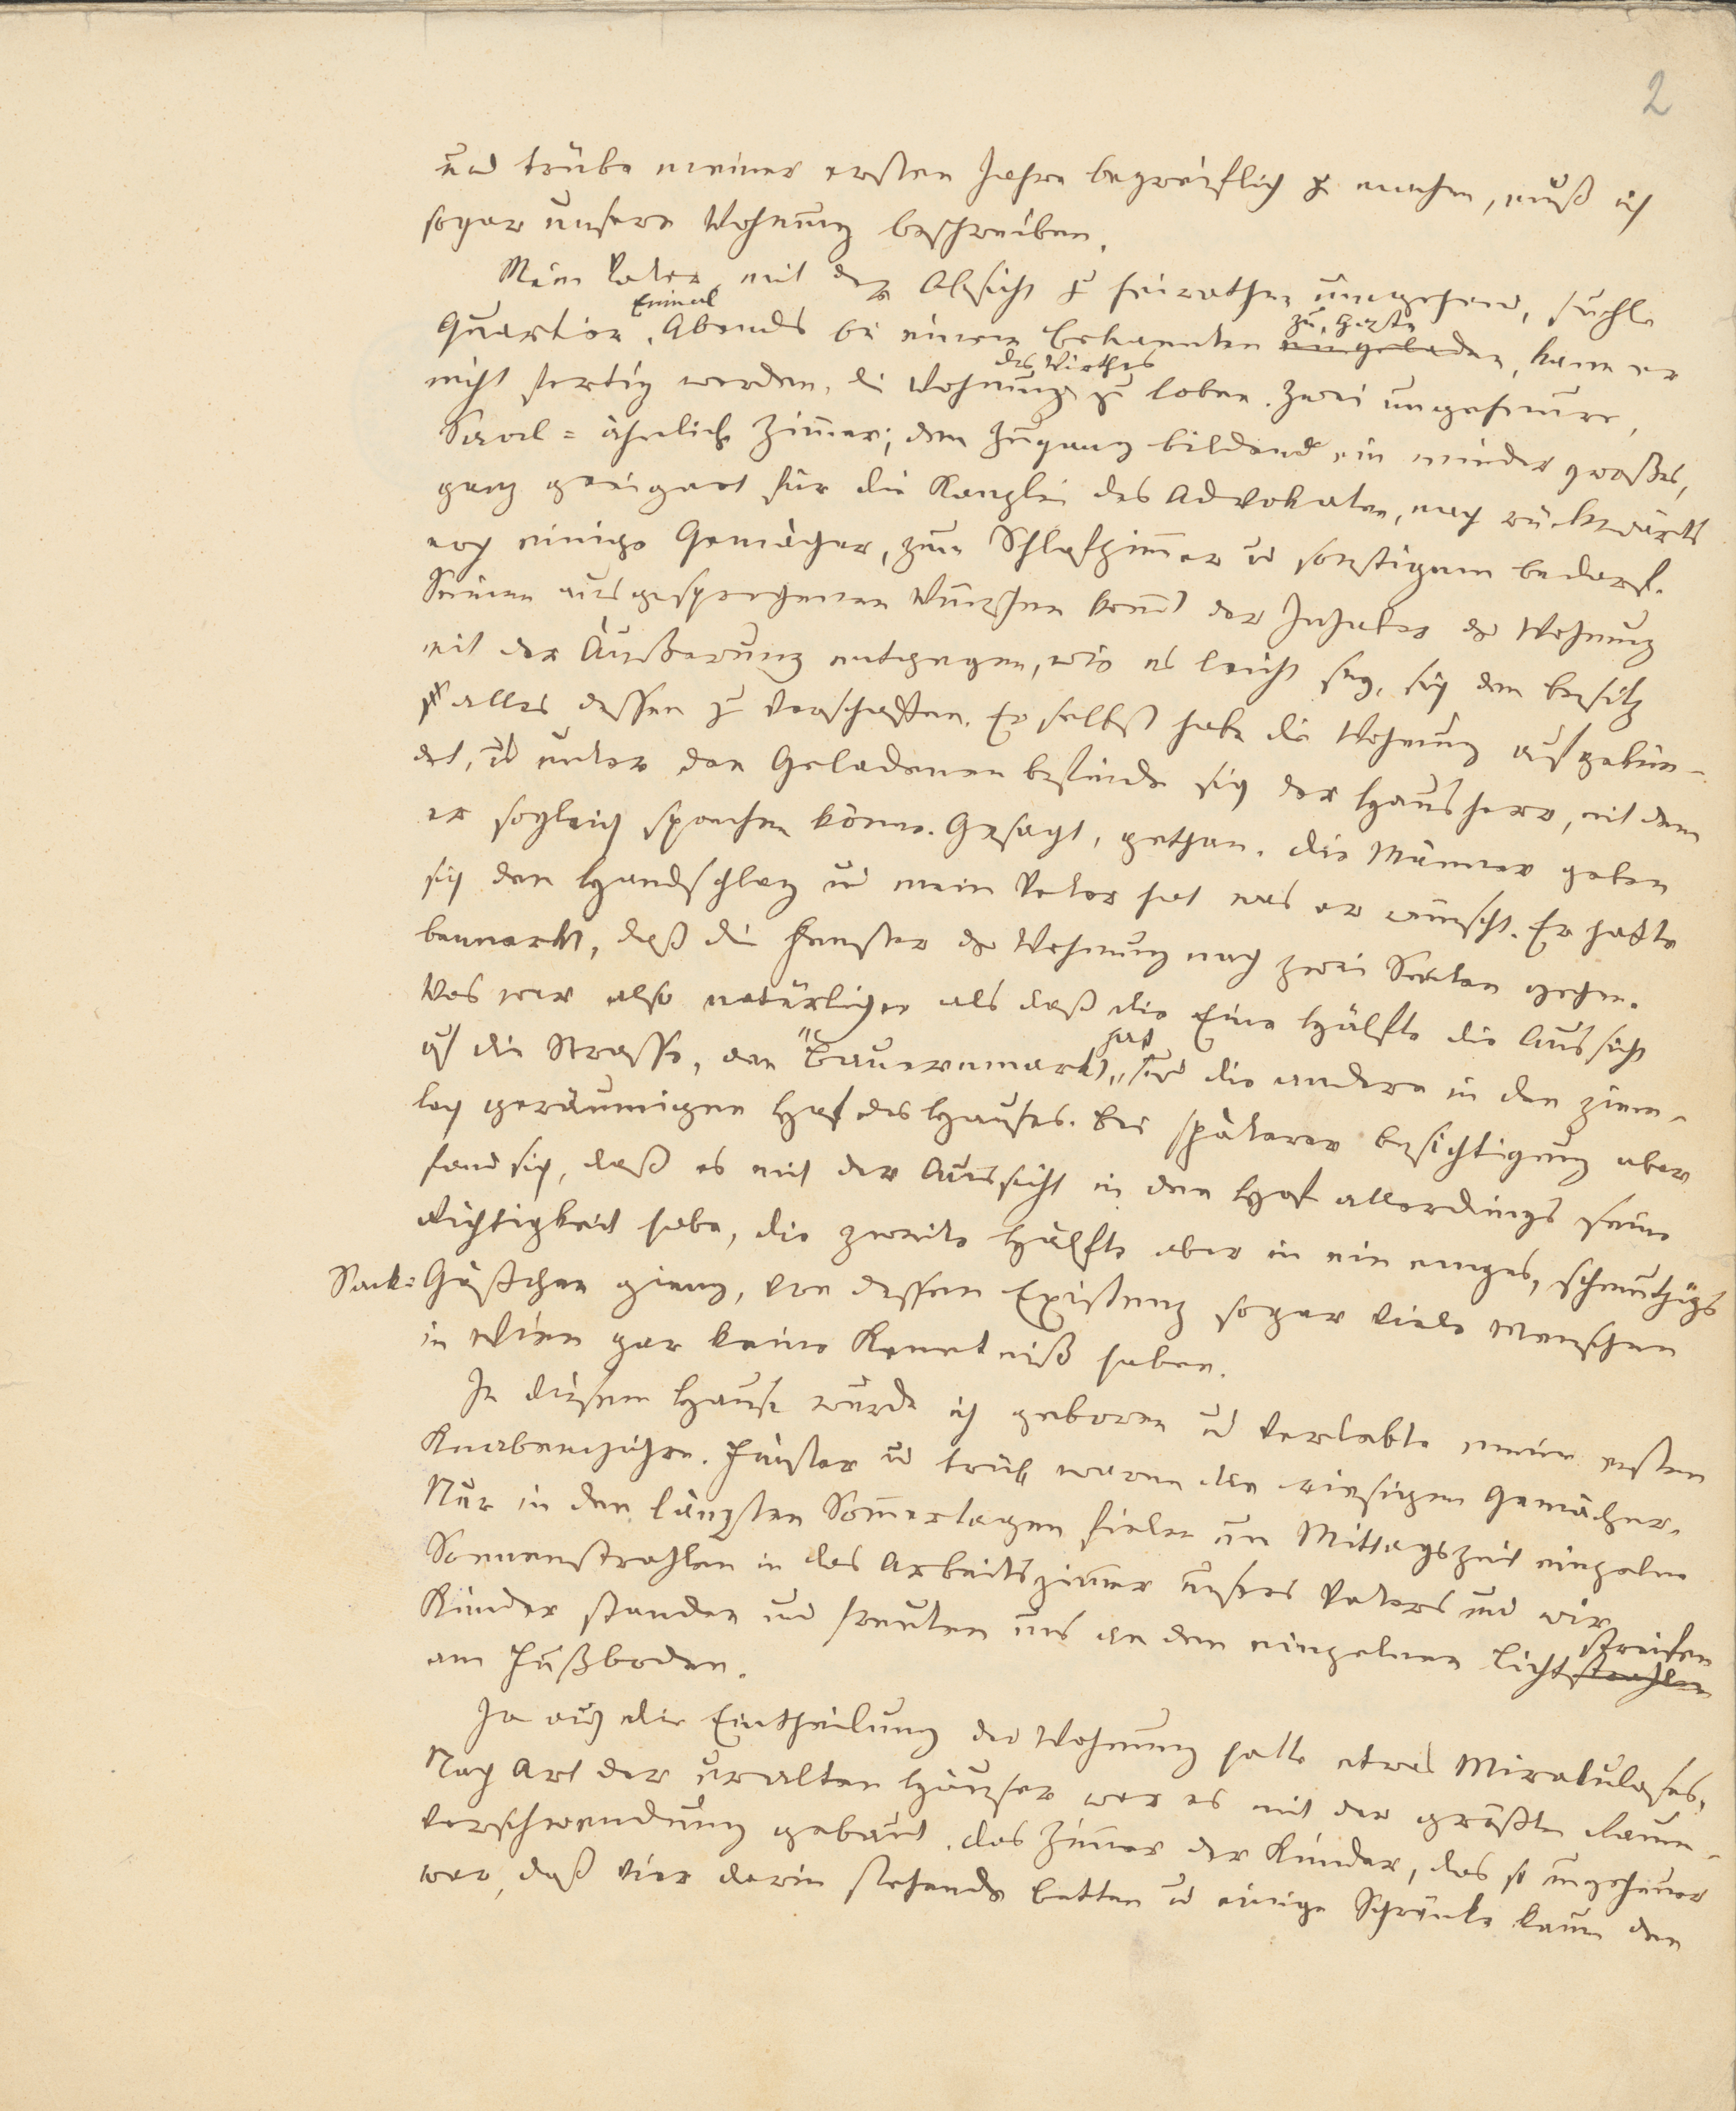 2
und trübe meiner ersten Jahre begreiflich zu machen, muß ich
sogar unsere Wohnung beschreiben.
Mein Vater, mit der Absicht zu heirathen umgehend, suchte
Quartier. Einmal Abends bei einem Bekannten eingeladen zu Gaste, kann er
nicht fertig werden, die Wohnung des Wirthes zu loben. Zwei ungeheure,
Saal-ähnliche Zimmer; den Zugang bildend ein minder großes,
ganz geeignet für die Kanzlei des Advokaten, nach rückwärts
noch einige Gemächer, zum Schlafzimmer und sonstigem Bedarf.
Seinen ausgesprochenen Wünschen kommt der Inhaber der Wohnung
mit der Äußerung entgegen, wie es leicht sey, sich den Besitz
alles dessen zu verschaffen. Er selbst habe die Wohnung aufgekün-
det, und unter den Geladenen befinde sich der Hausherr, mit dem
er sogleich sprechen könne. Gesagt, gethan. Die Männer geben
sich den Handschlag und mein Vater hat was er wünscht. Er hatte
bemerkt, daß die Fenster der Wohnung nach zwei Seiten gehen.
Was war also natürlicher als daß die Eine Hälfte die Aussicht
auf die Strasse, den "Bauernmarkt" hat, und die andere in den ziem-
lich geräumigen Hof des Hauses. Bei späterer Besichtigung aber
fand sich, daß es mit der Aussicht in den Hof allerdings seine
Richtigkeit habe, die zweite Hälfte aber in ein enges, schmutziges
Sack-Gäßchen gieng, von dessen Existenz sogar viele Menschen
in Wien gar keine Kenntniß haben.
In diesem Hause wurde ich geboren und verlebte meine ersten
Knabenjahre. Finster und trüb waren die riesigen Gemächer.
Nur in den längsten Sommertagen fielen um Mittagszeit einzelne
Sonnenstrahlen in das Arbeitszimmer unsers Vaters und wir
Kinder standen und freuten uns an den einzelnen Lichtstrahlen streifen
am Fußboden.
Ja auch die Eintheilung der Wohnung hatte etwas Mirakuloses.
Nach Art der uralten Häuser war es mit der größten Raum-
verschwendung gebaut. Das Zimmer der Kinder, das so ungeheuer
war, daß vier darin stehende Betten und einige Schränke kaum den